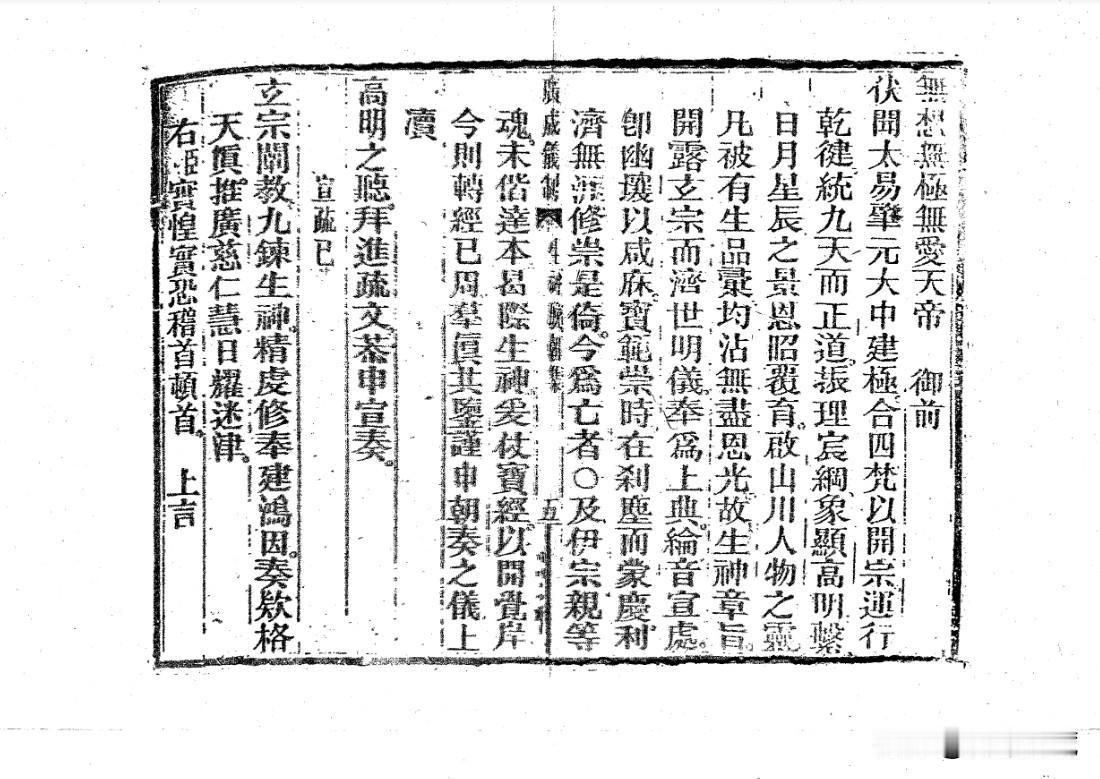 無想無極無愛天帝　御前
伏聞太易肇元大中建極合四梵以開宗運行
乾健統九天而正道振理宸綱象顯高明繫
日月星辰之景恩昭覆育啟山川人物之靈
凡被有生品彙均沾無盡恩光故生神章旨
開露玄宗而濟世明儀奉為上典綸音宣處
卽幽壤以咸庥寶範崇時在刹塵而蒙慶利
濟無涯修崇是倚今為亡者○及伊宗親等
廣成儀制
五
魂未偕達本曷際生神爰仗寶經以開覺岸
今則轉經已周羣真其鑒謹申朝奏之儀上
瀆
高明之聽拜進疏文恭申宣奏
宣疏已
玄宗闡教九鍊生神精虔修奉建鴻因奏欵格
天眞推廣慈仁慧日耀迷津
右實惶實恐稽首頓首　上言